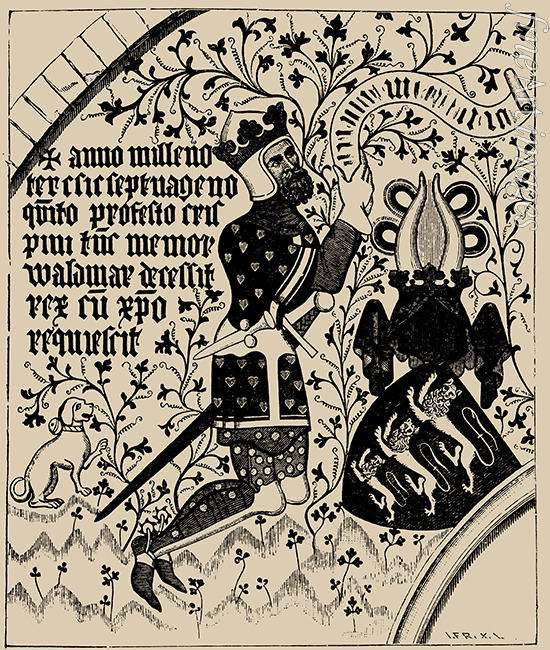 ✠ anno milleno
ter c sic septuageno
qūito profesto cris
pini tūc memor
waldmar decessit
rex cū xpo
requiescit
I.F.R.X.L.
fineartimages